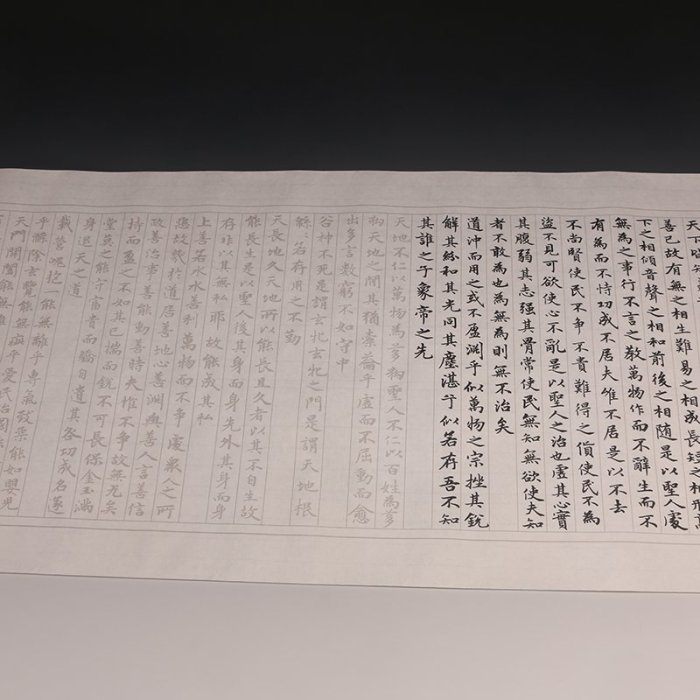 善已故有無之相生難易之相成長短之相形高
下之相傾音聲之相和前後之相隨是以聖人處
無為之事行不言之教萬物作而不辭生而不
有為而不恃功成不居夫惟不居是以不去
不尚賢使民不爭不貴難得之貨使民不為
盜不見可欲使心不亂是以聖人之治也虛其心實
其腹弱其志强其骨常使民無知無欲使夫知
者不敢為也為無為則無不治矣
道沖而用之或不盈淵乎似萬物之宗挫其銳
解其紛和其光同其塵湛乎似若存吾不知
其誰之子象帝之先
天地不仁以萬物為芻狗聖人不仁以百姓為芻
狗天地之間其猶橐籥乎虛而不屈動而愈
出多言數窮不如守中
谷神不死是謂玄牝玄牝之門是謂天地根
綿綿若存用之不勤
天長地久天地所以能長且久者以其不自生故
能長生是以聖人後其身而身先外其身而身
存非以其無私耶故能成其私
上善若水水善利萬物而不爭處眾人之所
惡故幾於道居善地心善淵與善人言善信
政善治事善能動善時夫惟不爭故無尤矣
持而盈之不如其已揣而銳不可長保金玉滿
堂莫之能守富貴而驕自遺其咎功成名遂
身退天之道
載營魄抱一能無離乎專氣致柔能如嬰兒
乎滌除玄覽能無疵乎愛民治國
天門開闔能無雌